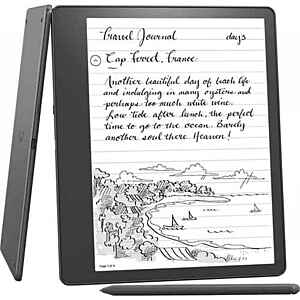 Travel Journal days
Cap Ferret, France
Another beautiful day of beach life
and indulging in many oysters and
perhaps too much white wine.
Low tide after lunch, the perfect
time to go to the ocean. Barely
another soul there Heaven!